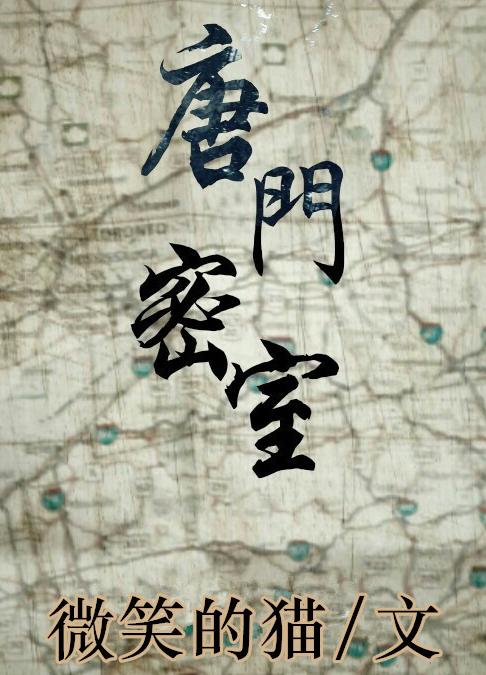 唐門密室
TORONTO
微笑的猫/文